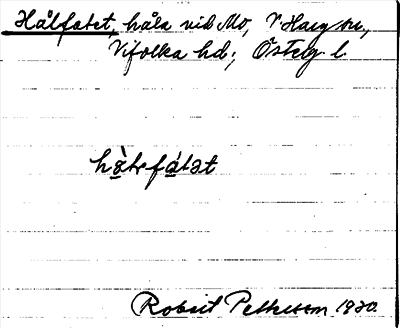 Hålfatet, håla vid Mo, V Harg sn,
Vifolka hd, Österg. l.
Robert Pettersson 1930.